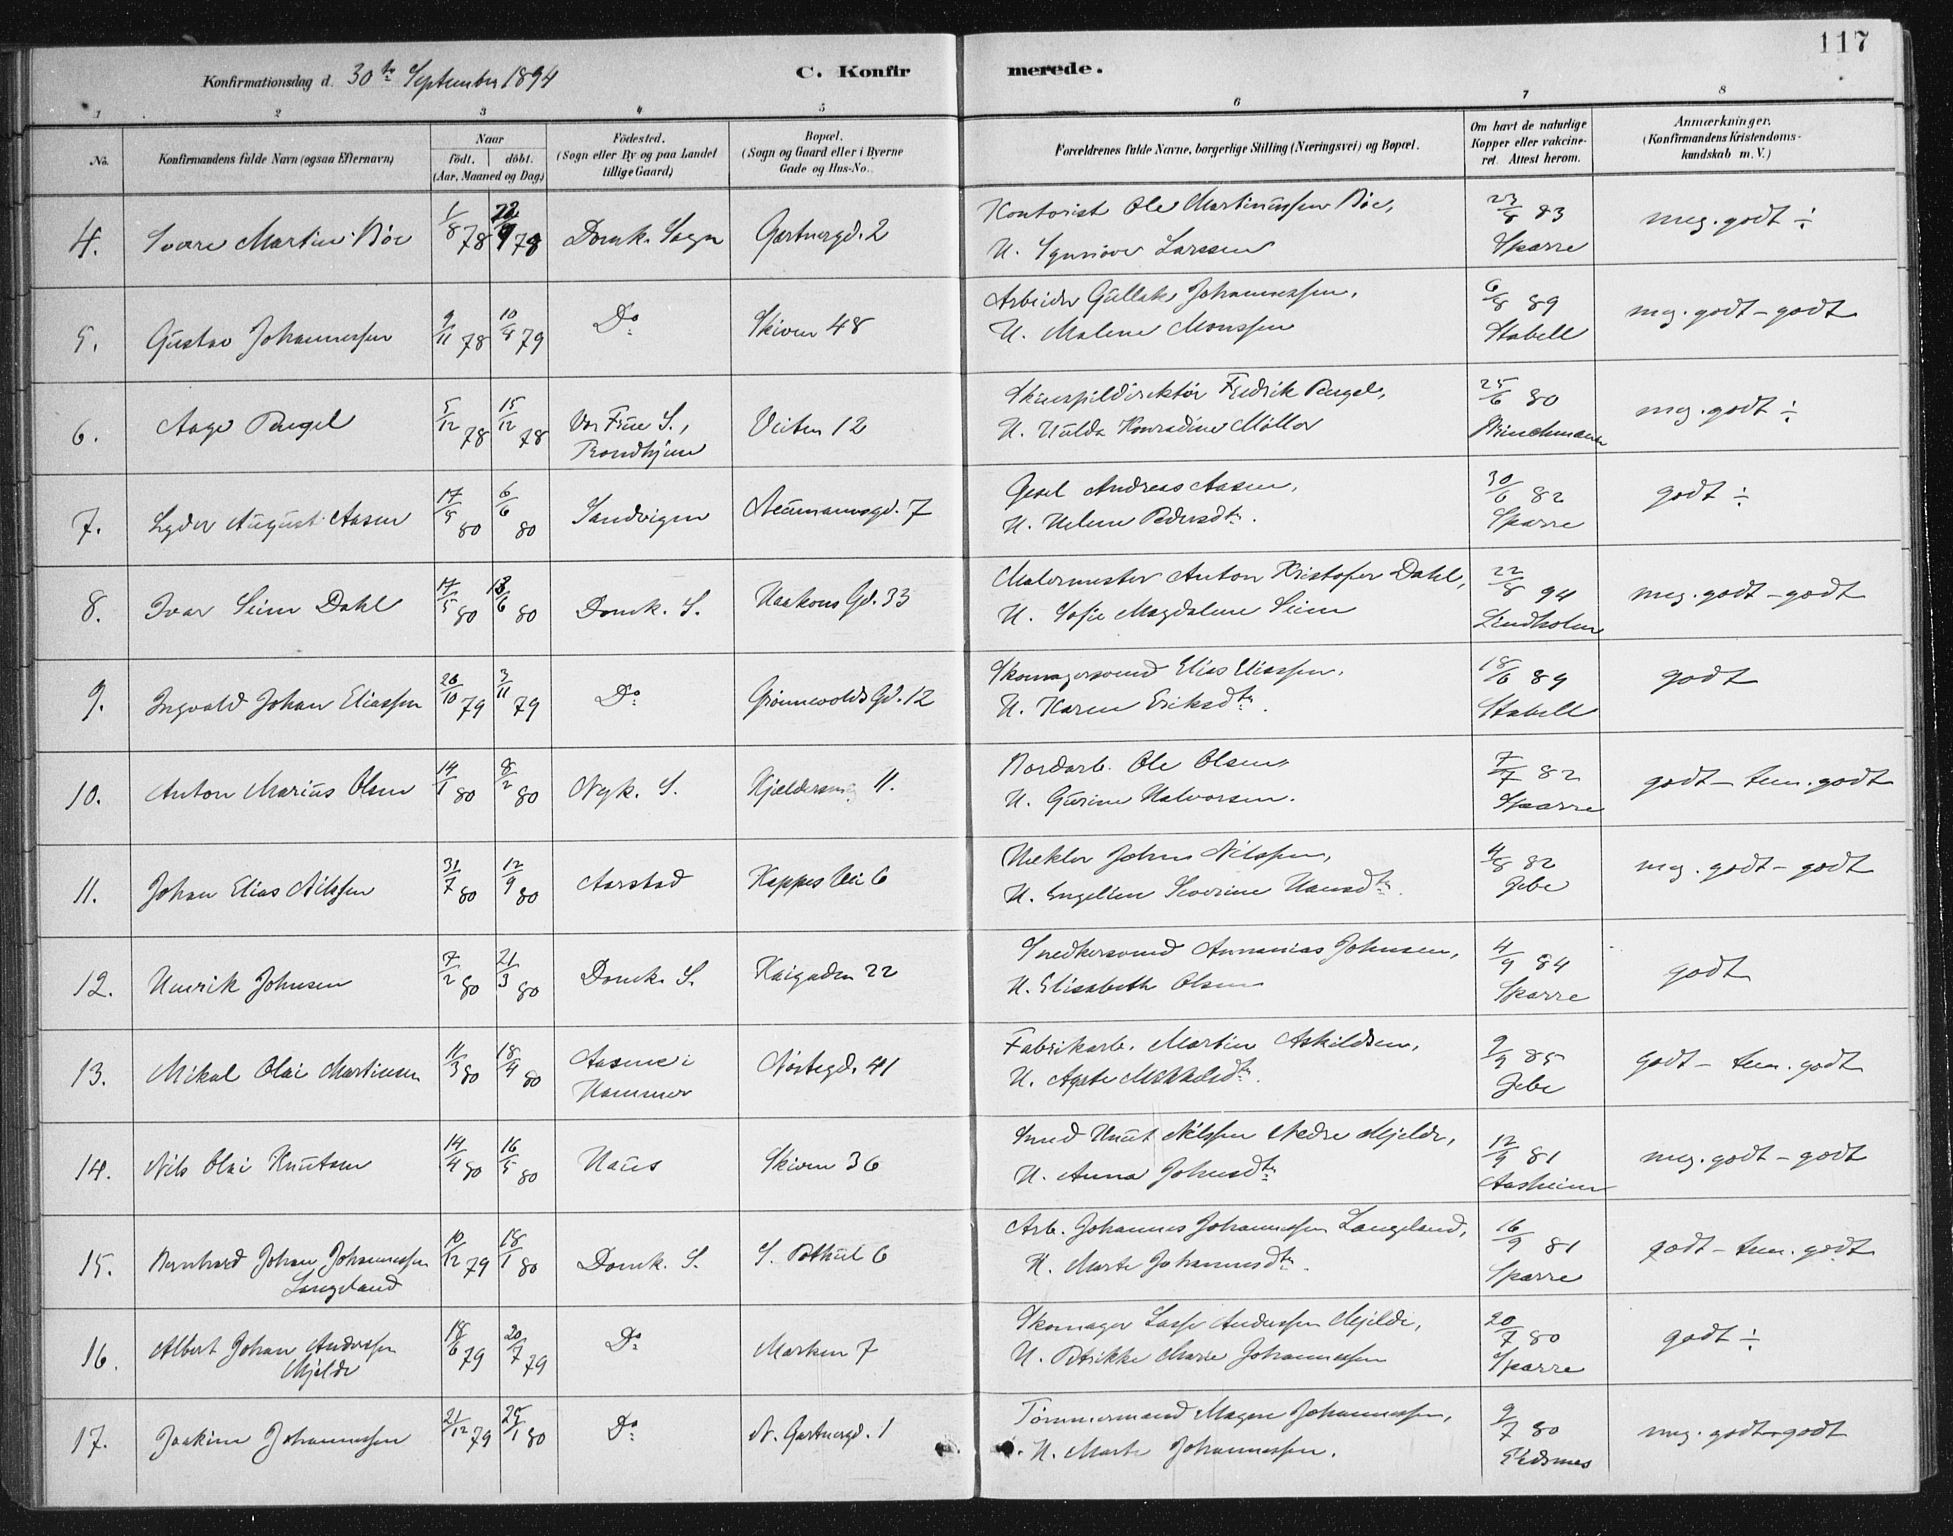 117
Konfirmationsdag d. 30te September 1894
C. Konfirmerede.
1 2 3 4 5 6 7 8
No.
Konfirmandens fulde Navn (ogsaa Efternavn)
Naar
födt. döbt.
(Aar, Maaned og Dag)
Födested.
(Sogn eller By og paa Landet
tillige Gaard)
Bopæl.
(Sogn og Gaard eller i Byerne
Gade og Hus-No.
Forældrenes fulde Navne, borgerlige Stilling (Næringsvei) og Bopæl.
Om havt de naturlige
Kopper eller vakcine-
ret. Attest herom.
Anmærkninger.
(Konfirmandens Kristendoms-
kundskab m. V.)
4. Sverre Martin Böe 1/8 78 22/9 78 Domk. Sogn Gartnergd. 2 Kontorist Ole Martinussen Böe, 23/8 83 meg. godt ÷
H. Synnöve Larssen Sparre
5. Gustav Johannessen 9/11 78 10/8 79 Do Skiven 48 Arbeider Gullak Johannessen, 6/8 89 meg. godt - godt
H. Malene Monssen Stabell
6. Aage Rugel 5/12 78 15/12 78 Vor Frue S., Veiten 12 Skuespildirektör Fredrik Rugel, 25/6 80 meg. godt ÷
Trondhjem H. Hulda Konradine Möller
7. Lyder August Aasen 17/5 80 6/6 80 Sandvigen Neumannsgd. 7 Gesel Andreas Aasen, 30/6 82 godt ÷
H. Helene Pedersdtr. Sparre
8. Ivar Seim Dahl 17/5 80 13/6 80 Domk. S. Haakons Gd. 33 Malermester Anton Kristofer Dahl, 22/8 94 meg. godt - godt
H. Sofie Magdalene Seim Lindholm
9. Ingvald Johan Eliassen 20/10 79 3/11 79 Do Grönnevolds Gd. 12 Skomagersvend Elias Eliassen, 18/6 89 godt
H. Karen Eriksdtr. Stabell
10. Anton Marius Olsen 14/1 80 8/2 80 Nyk. S. 11. Bordarb. Ole Olsen, 7/7 82 godt - tem. godt
H. Gurine Halvorsen. Sparre
11. Johan Elias Nilssen 31/7 80 12/9 80 Aarstad Kappes Vei 6 Hekler Johns Nilssen, 4/8 82 meg. godt - godt
H. Engeline Severine Hansdtr. Jebe
12. Henrik Johnsen 7/2 80 21/3 80 Domk. S. Kaigaden 22 Snedkersvend Annanias Johnsen, 4/9 84 godt
H. Elisabeth Olsen Sparre
13. Mikal Olai Martinsen 11/3 80 18/4 80 Aasene i Nöstegd. 41 Fabrikarb. Martin Askildsen, 9/9 85 godt - tem. godt
Hammer H. Agate Mikkelsdtr. Jebe
14. Nils Olai Knutsen 14/4 80 16/5 80 Haus Skiven 36 Smed Knut Nilssen Nedre Mjelde, 12/9 81 meg. godt - godt
H. Anna Johnsdtr. Aasheim
15. Bernhard Johan Johannessen 10/12 79 18/1 80 Domk. S. S. Pothul 6 Arb. Johannes Johannessen Langeland, 16/9 81 godt - tem. godt
Langeland H. Marte Johannesdtr. Sparre
16. Albert Johan Anderssen 18/6 79 20/7 79 Do Marken 7 Skomager Lasse Anderssen Mjelde, 20/7 80 godt ÷
Mjelde H. Petrikke Marie Johannessen Sparre
17. Joakim Johannessen 21/12 79 25/1 80 Do N. Gartnergd. 1 Tömmermand Magne Johannessen, 9/7 80 meg. godt - godt
H. Marte Johannessen.